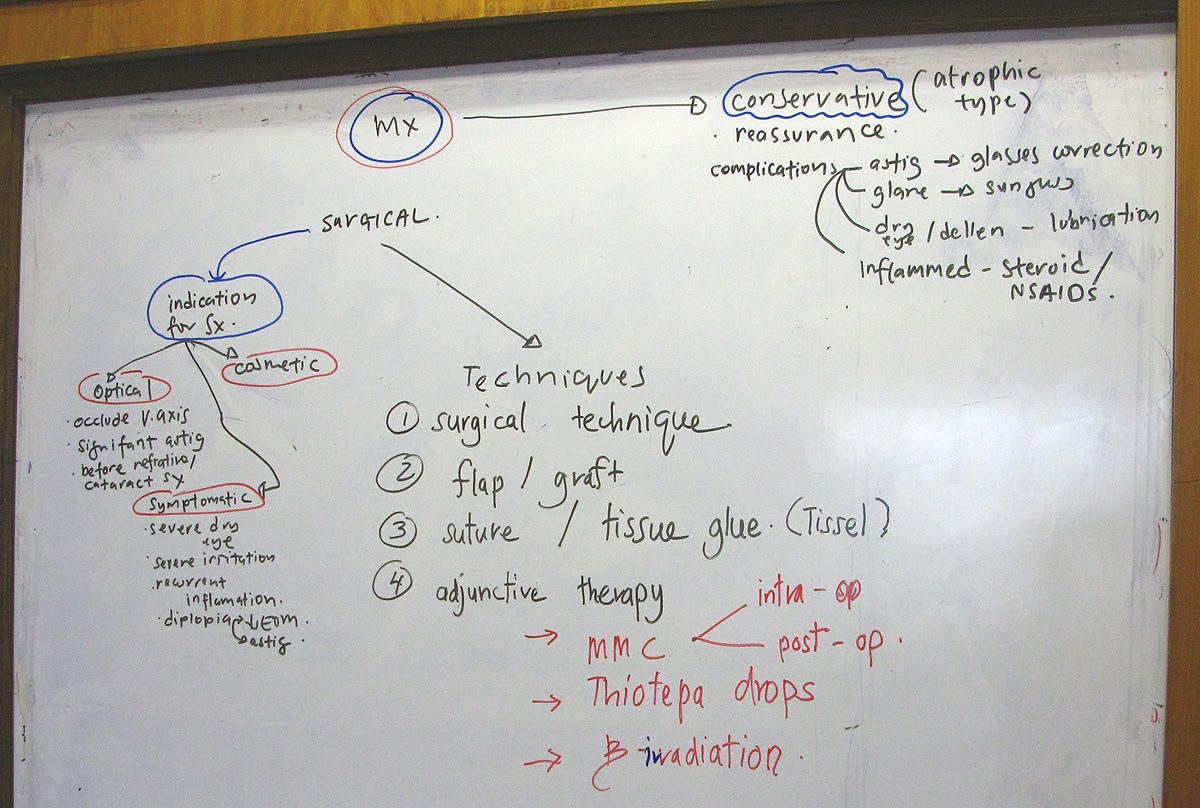 Mx
conservative (atrophic
type)
· reassurance.
complications
astig → glasses correction
glare →
dry
eye / dellen - lubrication
inflammed - steroid /
NSAIDs.
SURGICAL.
indication
for Sx.
cosmetic
optical
· occlude v.axis
· signifant astig
· before refrative/
cataract sx
symptomatic
· severe dry
eye
· severe irritation
· recurrent
inflamation.
· diplopia → ↓EOM.
→ astig.
Techniques
① surgical technique
② flap / graft
③ suture / tissue glue. (Tissel)
④ adjunctive therapy
→ MMC
intra-op
post-op.
→ Thiotepa drops
→ β-irradiation.